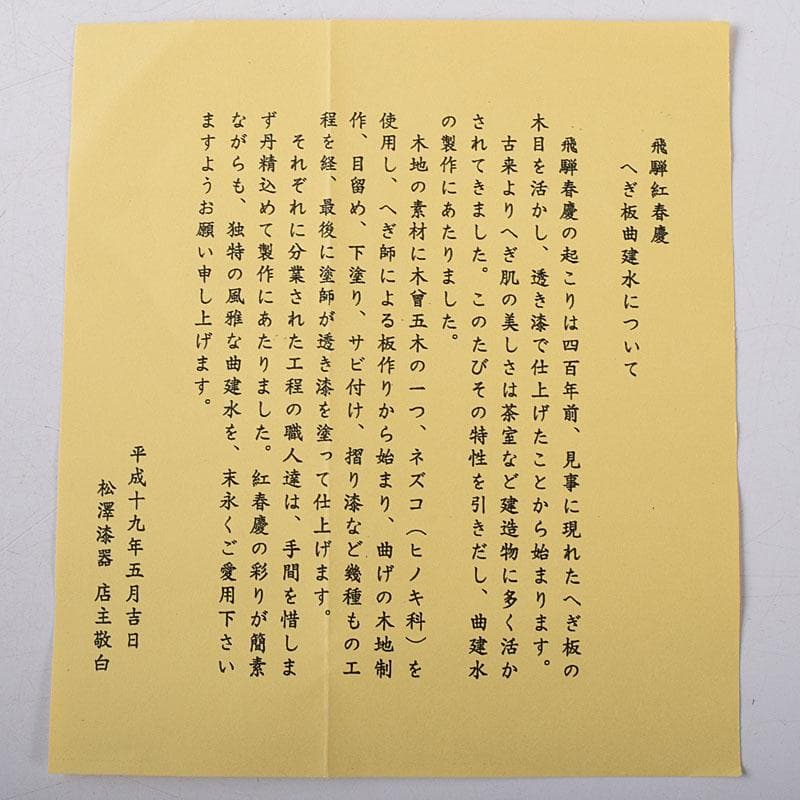 飛騨紅春慶
へぎ板曲建水について
飛騨春慶の起こりは四百年前、見事に現れたへぎ板の
木目を活かし、透き漆で仕上げたことから始まります。
古来よりへぎ肌の美しさは茶室など建造物に多く活か
されてきました。このたびその特性を引きだし、曲建水
の製作にあたりました。
木地の素材に木曾五木の一つ、ネズコ（ヒノキ科）を
使用し、へぎ師による板作りから始まり、曲げの木地制
作、目留め、下塗り、サビ付け、摺り漆など幾種もの工
程を経、最後に塗師が透き漆を塗って仕上げます。
それぞれに分業された工程の職人達は、手間を惜しま
ず丹精込めて製作にあたりました。紅春慶の彩りが簡素
ながらも、独特の風雅な曲建水を、末永くご愛用下さい
ますようお願い申し上げます。
平成十九年五月吉日
松澤漆器 店主敬白